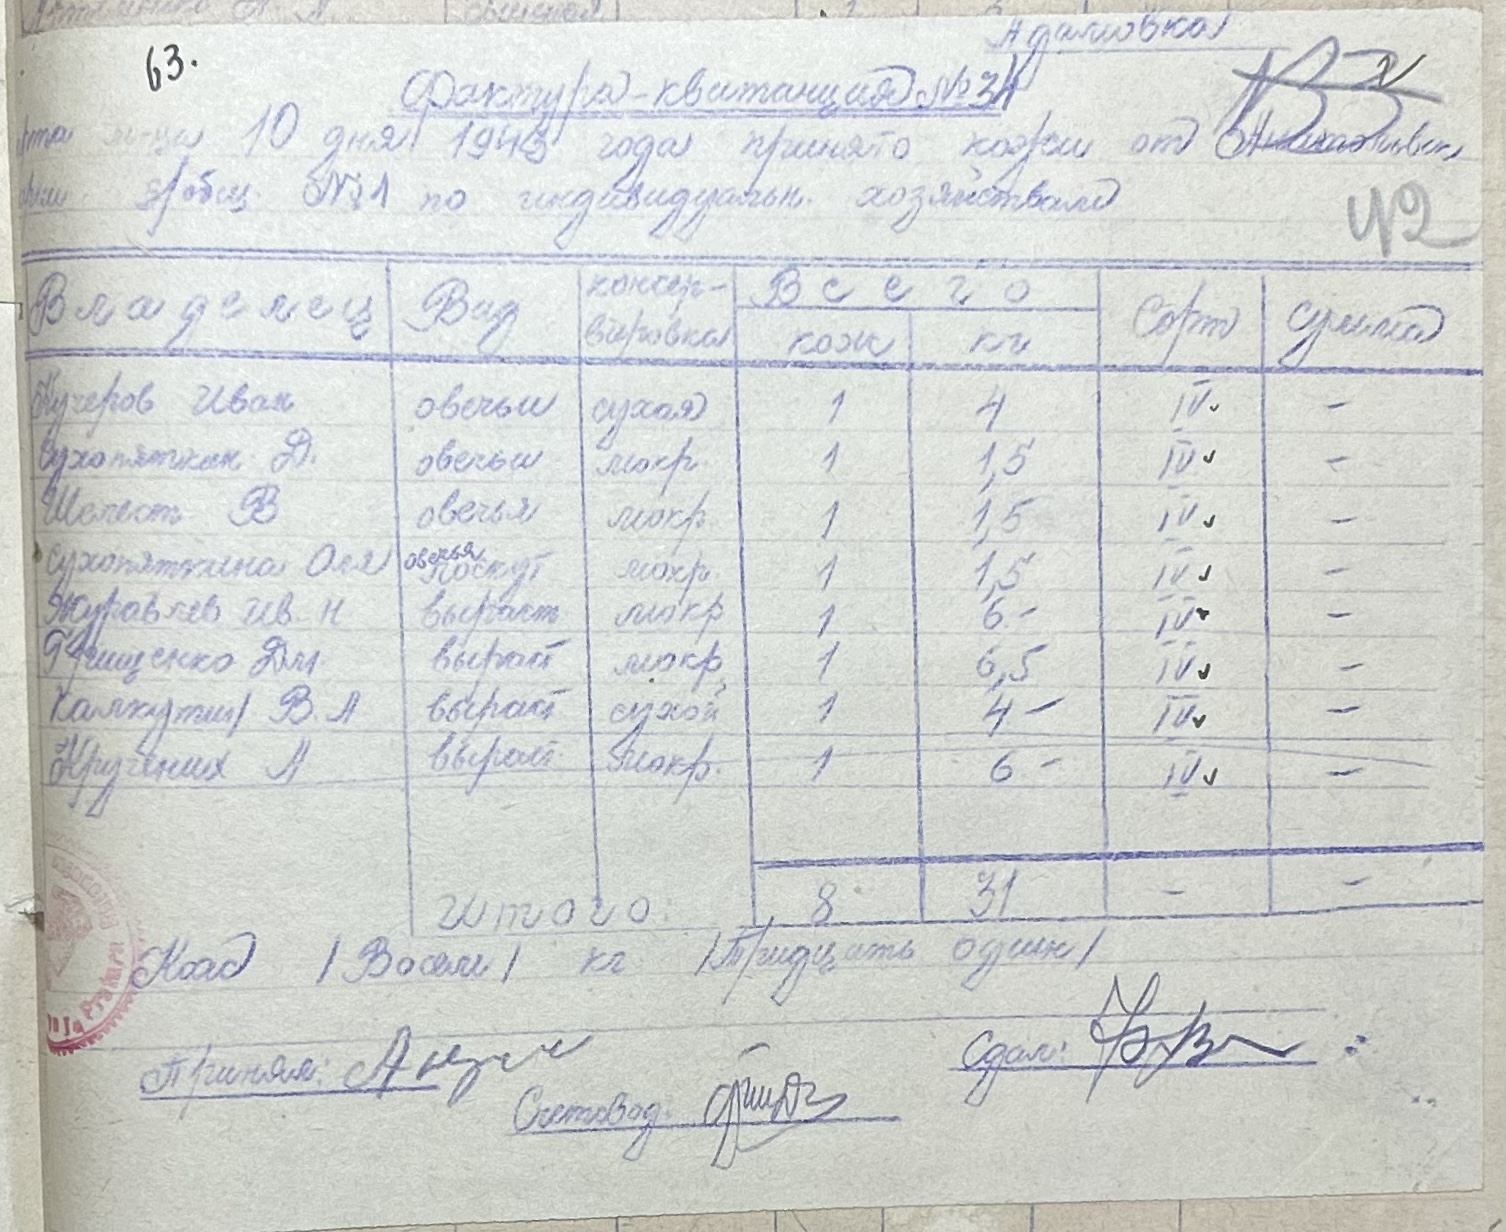 Адамовка
63.
Фактура-квитанция №34
м-ца 10 дня 1943 года принято кожи от
общ. №1 по индивидуальн. хозяйствам
42
Владелец Вид консер-вировка Всего кож кг Сорт сумма
Кучеров Иван овечьи сухая 1 4 IV –
Сухопяткин Д. овечьи мокр. 1 1,5 IV –
Шелест В овечья мокр. 1 1,5 IV –
Сухопяткина Оля овечья лоскут мокр. 1 1,5 IV –
Журавлев Ив. Н выраст мокр 1 6- IV –
Грищенко Дм. выраст мокр. 1 6,5 IV –
Калкутин В. А выраст сухой 1 4- IV –
Кручених А выраст мокр. 1 6- IV –
Итого: 8 31 – –
Кож /Восем/ кг /Тридцать один/
Принял:
Сдал:
Счетовод: